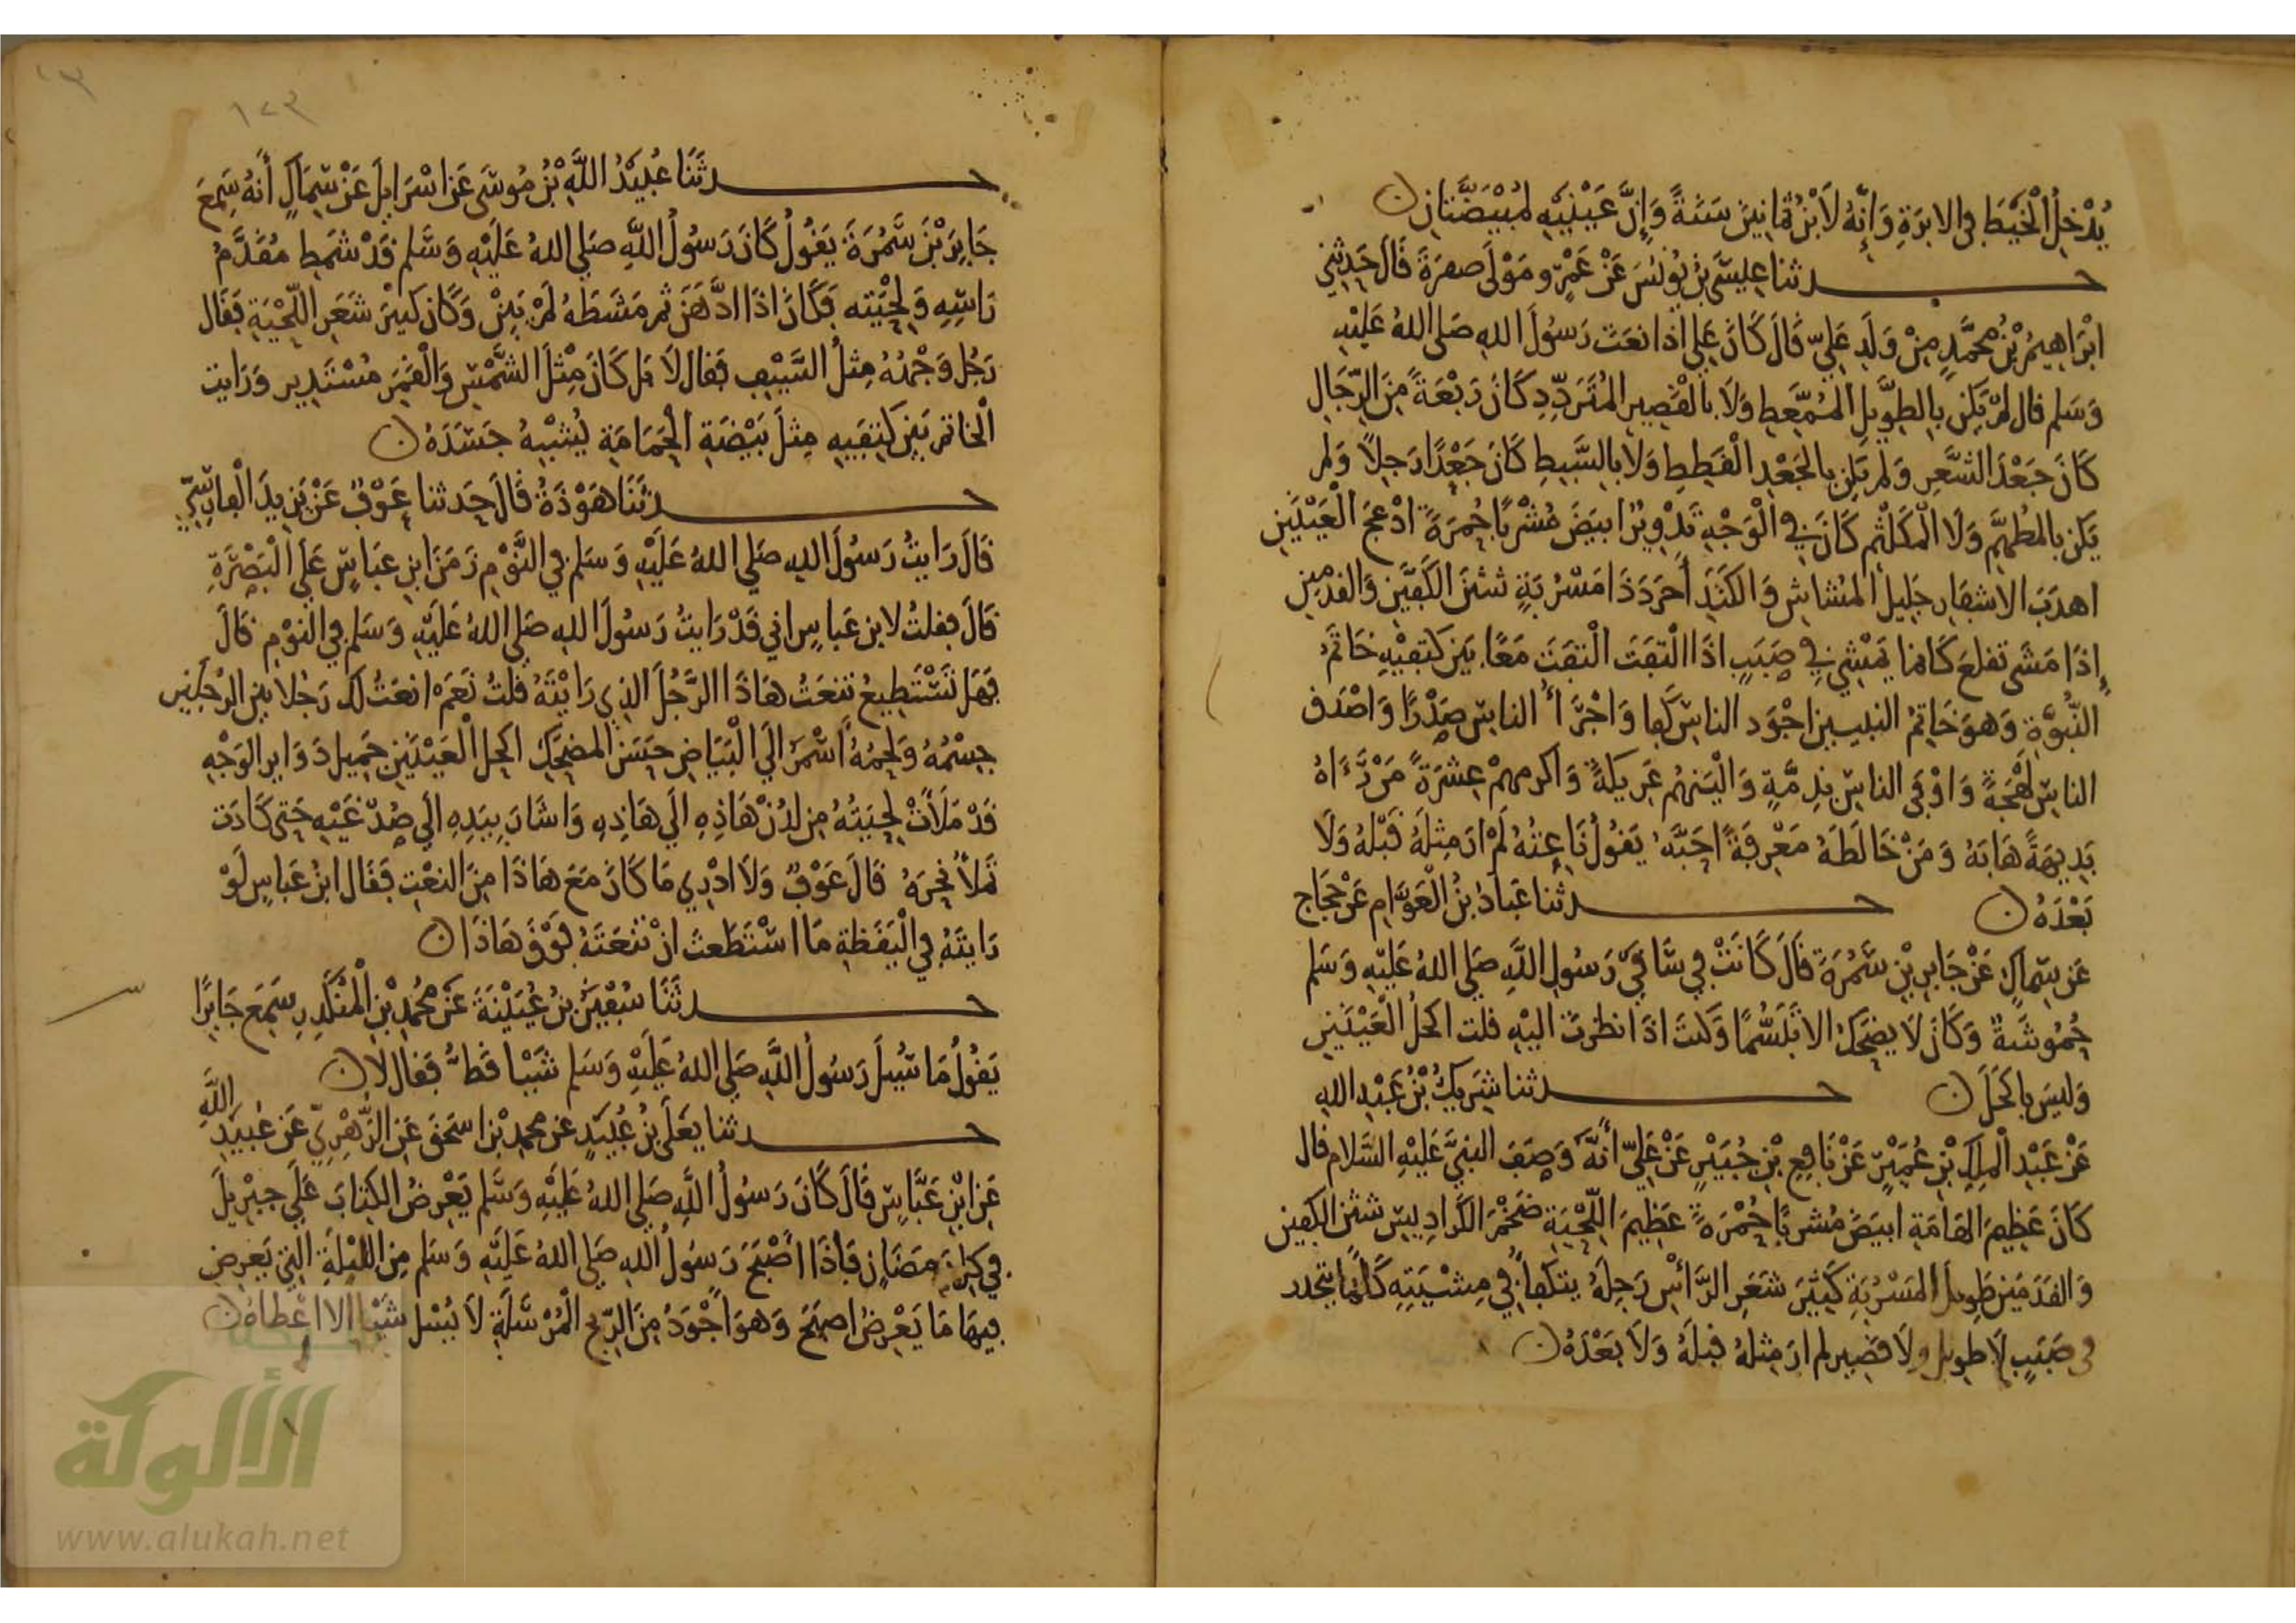 يُدْخِلُ الْخَيْطَ فِى الابرَةِ وَإِنَّهُ لَابْنُ ثمَانِينَ سَنَةً وَإِنَّ عَيْنَيْهِ لمُبْيَضَّتَانِ ن
حــدثنا عِيسَى بْنُ يُونُسَ عَنْ عُمَر مَوْلَى قَالَ حَدثنِي
ابْرَاهِيمُ بْنُ مُحَمَّدٍ مِنْ وَلَدِ عَلِيّ قَالَ كَانَ عَلِي اذَا نعَتَ رَسُولَ اللهِ صَلى اللهُ عَلَيْهِ
وَسَلم قال لَمْ يَكن بِالطَّوِيلِ المُمَّعِطِ وَلَا بالْقَصِيرِ المُتَرَدِّدِ كَانَ رَبْعَةً مِنَ الرِّجَالِ
كَانَ جَعْدَ الشعَرِ وَلَمْ يَكن بِالجَعْدِ الْقَطِطِ وَلَا بِالسَّبِطِ كَانَ جَعْدًا رَجِلاً وَلم
يَكن بالمُطَهَّمِ وَلَا الْمُكَلْثَمِ كَانَ فِى الْوَجْهِ تَدْوِيرٌ ابيَضَ مُشْرَبًا حُمرَةً ادْعَجَ الْعَيْنَيْنِ
اهدَبَ الاشفَارِ جَلِيلَ المُشَاشِ وَالكَتَدِ أَجرَدَ ذَا مَسْرُبَةٍ شثنَ الكَفَّيْنِ وَالقدمين
إِذَا مَشَى تقلعَ كَانما يَمْشِي فِي صَبَبٍ اذَا الْتفَتَ الْتفَتَ مَعًا بَيْنَ كتفَيْهِ خَاتَمُ
النُّبُوَّةِ وَهوَ خَاتمُ النبيين اجْوَد الناسِ كفا وَاجْرَأُ الناسِ صَدْرًا وَاصْدَق
الناسِ لَهْجَةً وَاوْفَى الناسِ بِذِمَّةٍ وَالْيَنهُم عَرِيكَةً وَاكرمهمْ عِشرَةً مَنْ رَءَاهُ
بَدِيهَةً هَابَهُ وَمَنْ خَالَطَهُ مَعْرِفَةً احَبَّهُ يَقُولُ نَاعِتُهُ لَمْ ارَ مِثلَهُ قَبْلَهُ وَلَا
بَعْدَهُ ن حــدثنا عَبادُ بْنُ الْعَوَّامِ عَنْ حَجَّاج
عَن سِمَاكٍ عَنْ جَابِرِ بْنِ سَمُرَةَ قَالَ كَانَتْ فِي سَاقَيْ رَسُولِ اللَّهِ صَلى اللهُ عَلَيْهِ وَسَلم
حُمُوشَةٌ وَكَانَ لَا يضحَكُ الا تبَسُّمًا وَكنتَ اذَا نظرتَ الَيْهِ قلت اكحل الْعَيْنَيْنِ
وَليسَ باكحَلَ ن حــدثنا شَرِيكُ بْنُ عَبْدِ اللهِ
عَنْ عَبْدِ الْمَلِكِ بْنِ عُمَيْرٍ عَنْ نَافِعِ بْنِ جُبَيْرٍ عَنْ عَلِيّ أَنَّهُ وَصَفَ النبيَّ عَلَيْهِ السَّلام قال
كَانَ عَظِيمَ الهَامَةِ ابيَضَ مُشربًا حُمْرَةً عَظِيمَ اللِّحْيَةِ ضَخْمَ الكَرَادِيسِ شثنَ الكفين
وَالقَدَمَيْنِ طَوِيلَ المَسْرُبَةِ كَثِيرَ شعَرِ الرَّأسِ رَجِلَهُ يتكفأ فِي مِشْيَتِهِ كَأَنمَا يتحدر
فِى صَبَبٍ لَا طويل ولَا قصير لم ارَ مِثلهُ قبلَهُ وَلَا بَعْدَهُ ن
١٢٣
حــدثَنَا عُبَيْدُ اللَّهِ بْنُ مُوسَى عَن اسْرَايِلَ عَنْ سِمَاكٍ أَنهُ سَمِعَ
جَابِرَ بْنَ سَمُرَةَ يَقُولُ كَانَ رَسُولُ اللَّهِ صَلى اللهُ عَلَيْهِ وَسَّلم قَدْ شمَط مُقَدَّمُ
رَاسِهِ وَلِحْيَته فَكَانَ اذَا ادَّهَنَ ثم مَشَطَهُ لَمْ يَبِنْ وَكَانَ كثيرَ شَعَرِ اللّحْيَةِ فقَال
رَجُل وَجْهُهُ مِثلُ السَّيْفِ فقال لَا بَل كَانَ مِثْلَ الشَّمْسِ وَالْقَمَرِ مُسْتَدِير وَرَايت
الْخاتم بَيْنَ كتفَيهِ مِثلَ بَيْضَةِ الْحمَامَةِ يُشبِهُ جَسَدَهُ ن
حــدثَنَا هَوْذَةُ قَالَ حَدثنا عَوْفٌ عَنْ يَزِيدَ الْفارِسِيِّ
قَالَ رَايتُ رَسُولَ اللهِ صَلى اللهُ عَلَيْهِ وَسَلم فِي النَّوْمِ زَمَنَ ابنِ عَبَاسٍ عَلَى الْبَصْرَةِ
قَالَ فقلتُ لابنِ عَباسٍ اني قَدْ رَايتُ رَسُولَ اللهِ صَلى اللهُ عَلَيْهِ وَسَلم فِي النوْمِ قَالَ
فهَل تَسْتَطِيعُ تنعَتُ هَاذَا الرَّجُلَ الذِي رَايْتَهُ قلتُ نَعَمْ انعَتُ لك رَجُلا بين الرجلين
جِسْمُهُ وَلحمُهُ اسْمَرُ الَى الْبَيَاضِ حَسَن المضحَكِ اكحل الْعَيْنَيْنِ جَمِيل دَوَاير الوَجْهِ
قَدْ مَلَأَتْ لِحْيَتُهُ مِن لدُنْ هَاذِهِ الَى هَاذِهِ وَاشَارَ بِيَدِهِ الَى صُدْغَيْهِ حَتى كَادَت
تَمْلأُ نَحرَهُ قَالَ عَوْفٌ وَلَا ادْرِي مَا كَانَ مَعَ هَاذَا مِنَ النعْتِ فَقَال ابنُ عَباسٍ لَوْ
رَايتَهُ فِي الْيَقَظةِ مَا اسْتَطَعتَ انْ تنعَتَهُ فَوْقَ هَاذَا ن
حــدثَنَا سُفْيَنُ بنُ عُيَيْنَةَ عَن مُحمدِ بْنِ الْمُنْكَدِرِ سَمِعَ جَابِرًا
يَقُولُ مَا سُيلَ رَسُولُ اللَّهِ صَلى اللهُ عَلَيْهِ وَسَلم شَيْا قَطُّ فقال لا ن
حــدثنا يَعْلَى بْنُ عُبَيْدٍ عَن محمدِ بْنِ اسحَقَ عَنِ الزُّهْرِيِّ عَن عُبَيْدِ اللَّهِ
عَنِ ابْنِ عَبَّاسٍ قَالَ كَانَ رَسُولُ اللَّهِ صَلى اللهُ عَلَيْهِ وَسَّلم يَعْرِضُ الكِتَابَ عَلَى جِبْرِيلَ
فِي كل رَمَضَانٍ فَاذَا اصْبَحَ رَسُولُ اللهِ صَلى اللهُ عَلَيْهِ وَسَلم مِنَ اللَّيْلَةِ التِي يَعرِض
فِيهَا مَا يَعْرِضُ اصبَحَ وَهوَ اجْوَدُ مِنَ الرِّيحِ الْمُرْسَلَةِ لَا يُسْل شَيْا الا اعْطاهُ ن
الألوكة
www.alukah.net